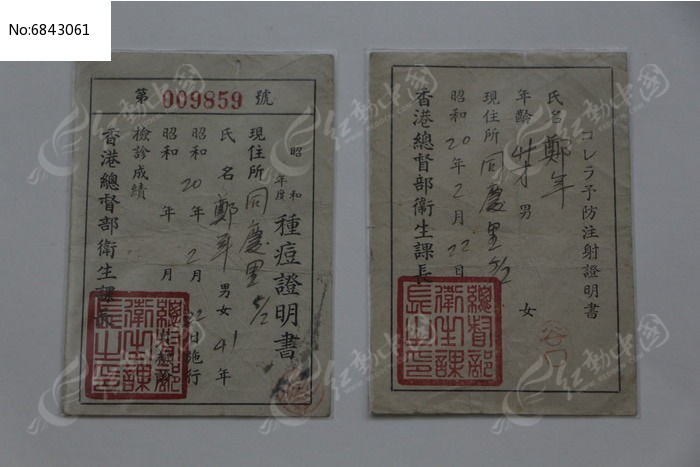 No:6843061
第 009859 號
昭和 年度 種痘證明書
現住所 同慶里 5/2
氏名 鄭年 男 女 41年
昭和20年2月22日施行
昭和 年 月
檢診成績
香港總督部衛生課長
總督部衛生課長之印
コレラ予防注射證明書
氏名 鄭年
年齡 41才 男 女
現住所 同慶里 5/2
昭和20年2月22日
香港總督部衛生課長
總督部衛生課長之印
谷口
红动中国